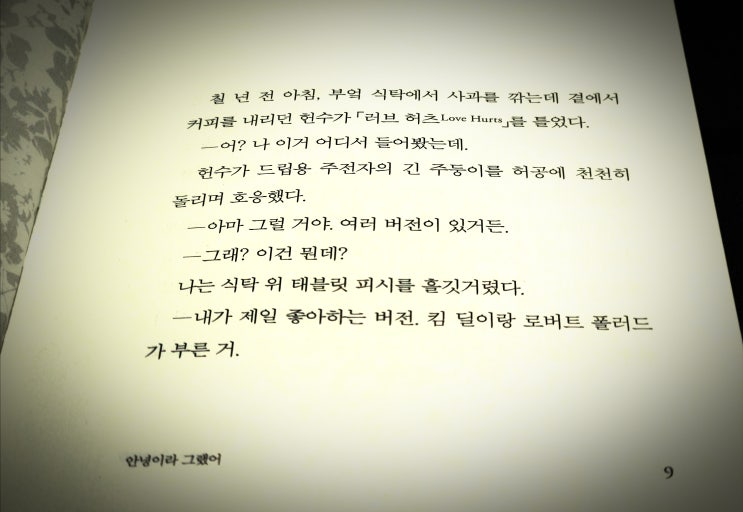 칠 년 전 아침, 부엌 식탁에서 사과를 깎는데 곁에서
커피를 내리던 헌수가 「러브 허츠Love Hurts」를 틀었다.
—어? 나 이거 어디서 들어봤는데.
헌수가 드립용 주전자의 긴 주둥이를 허공에 천천히
돌리며 호응했다.
—아마 그럴 거야. 여러 버전이 있거든.
—그래? 이건 뭔데?
나는 식탁 위 태블릿 피시를 흘깃거렸다.
—내가 제일 좋아하는 버전. 킴 딜이랑 로버트 폴러드
가 부른 거.
안녕이라 그랬어
9